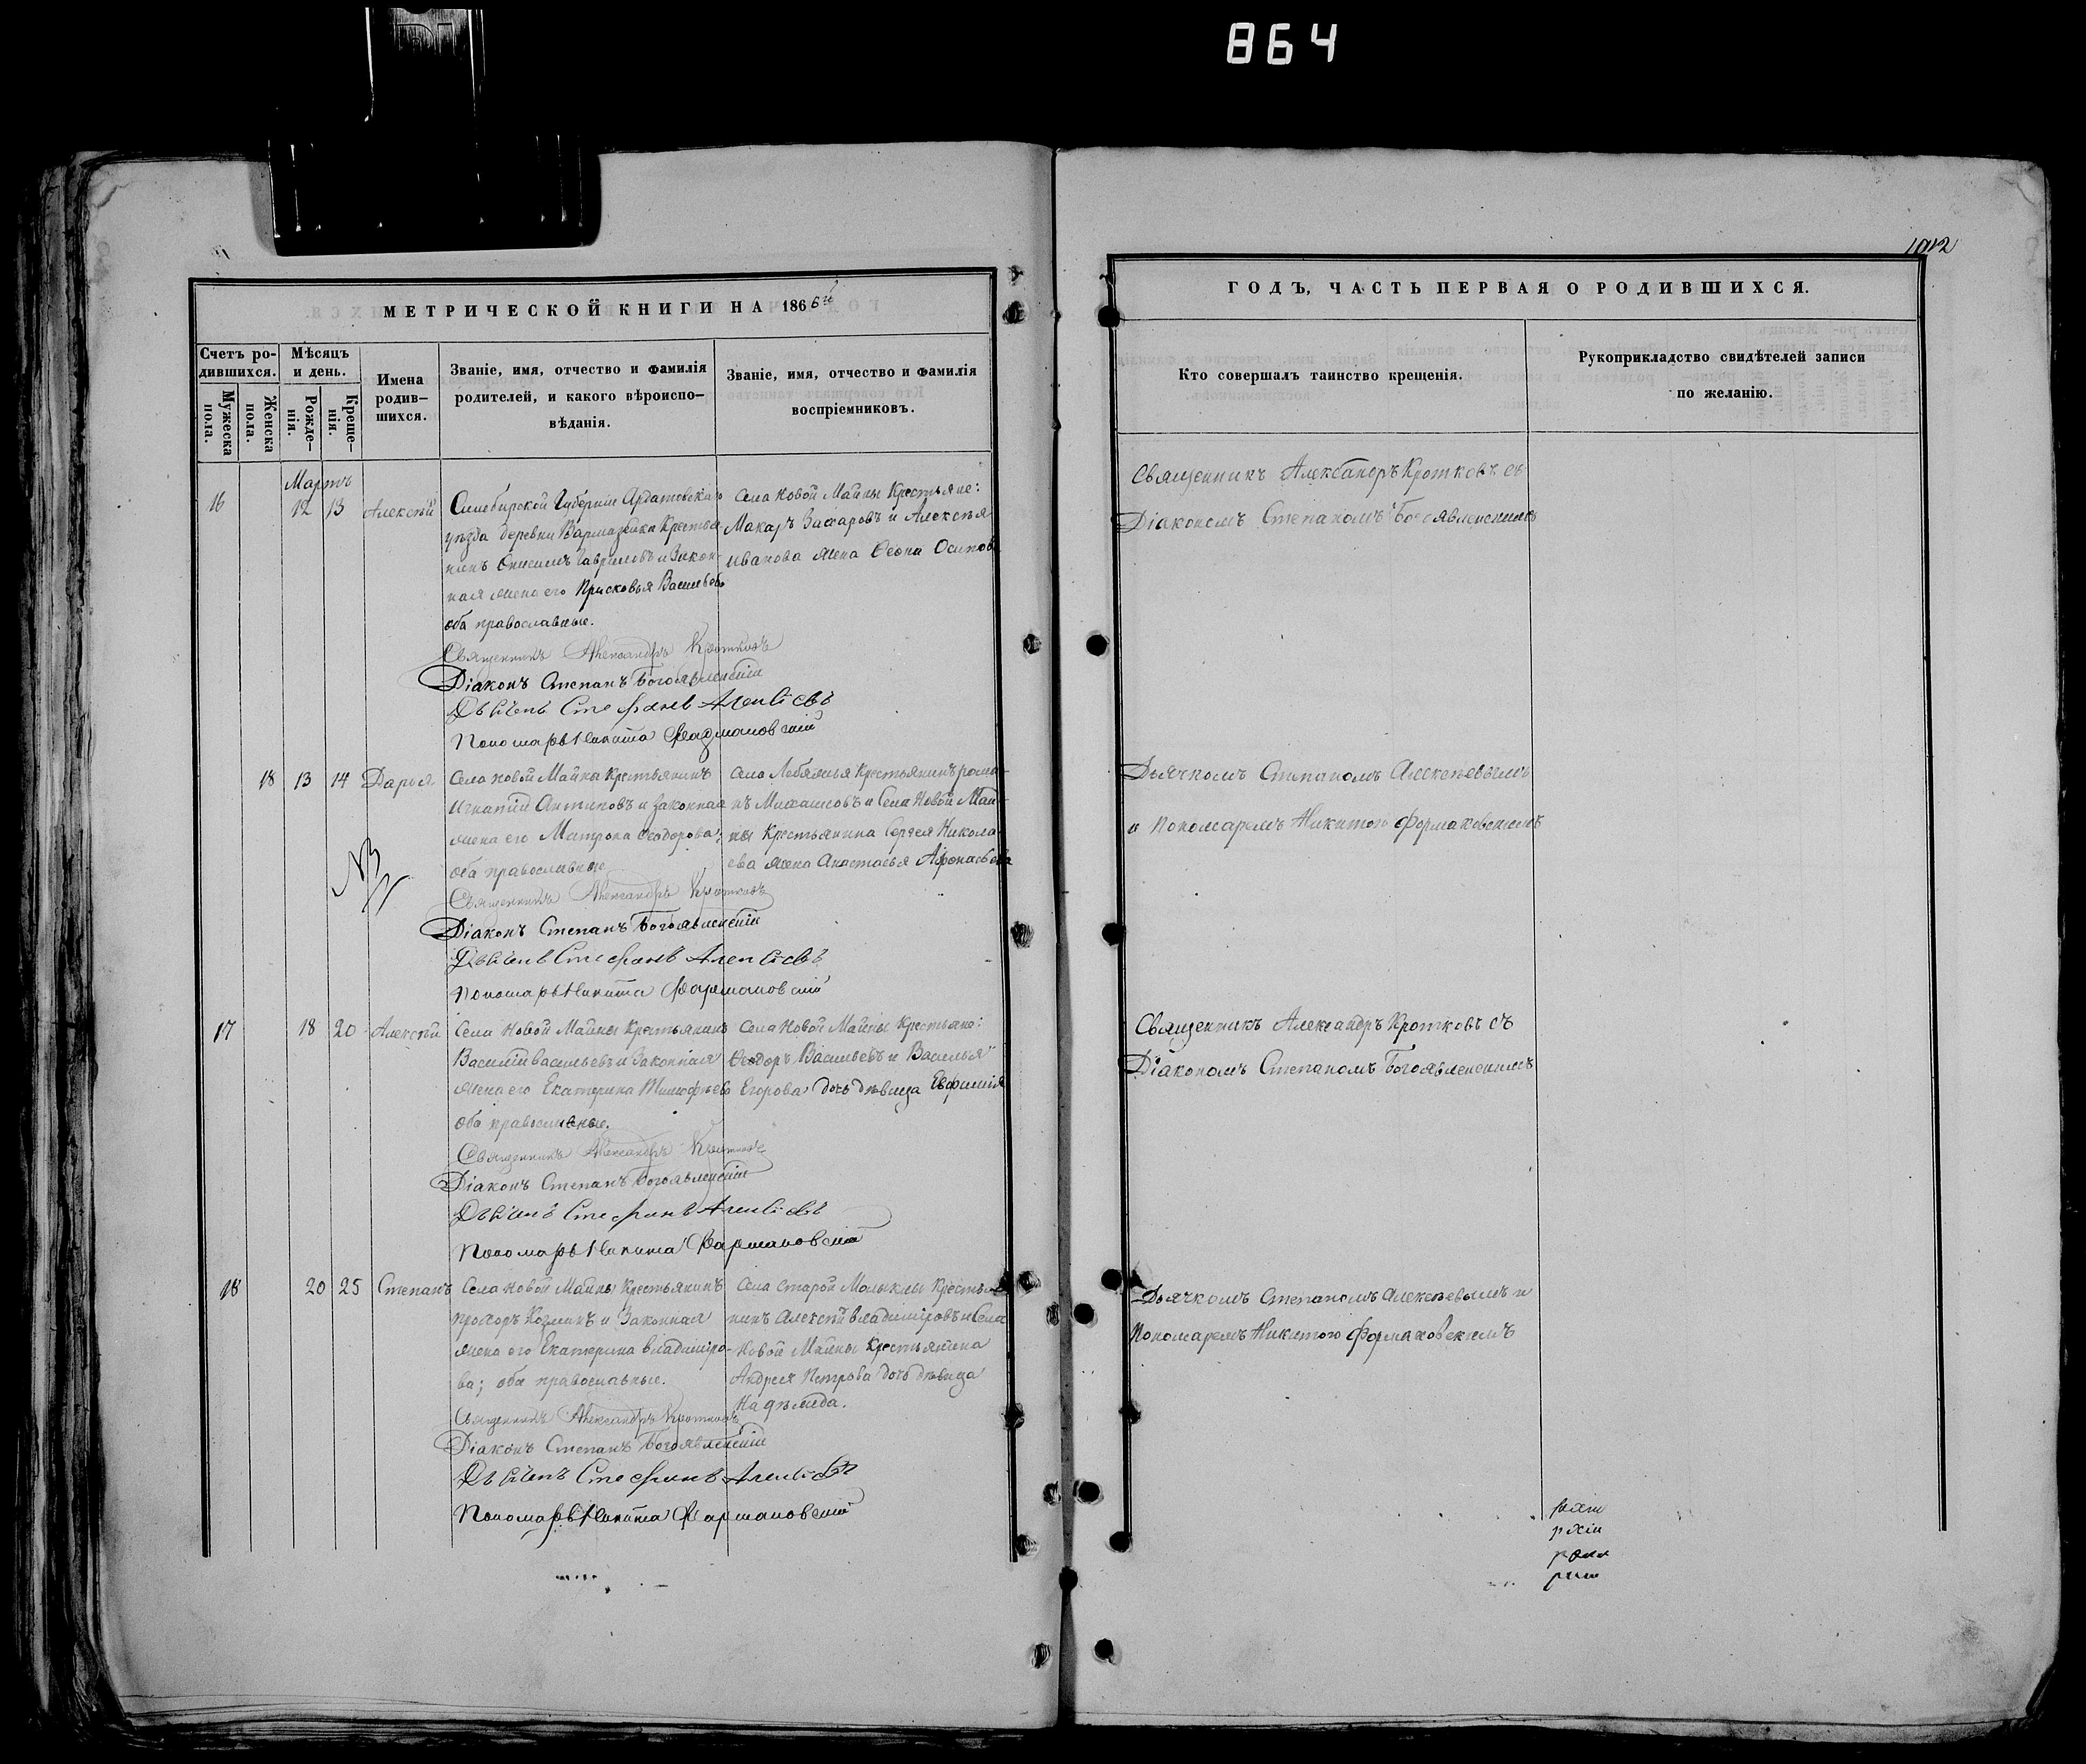 864
1012
МЕТРИЧЕСКОЙ КНИГИ НА 1866й
ГОДЪ, ЧАСТЬ ПЕРВАЯ О РОДИВШИХСЯ.
Счетъ ро-
дившихся.
Мужеска
пола.
Женска
пола.
Мѣсяцъ
и день.
Рожде-
нія.
Креще-
нія.
Имена
родив-
шихся.
Званіе, имя, отчество и фамилія
родителей, и какого вѣроиспо-
вѣданія.
Званіе, имя, отчество и фамилія
воспріемниковъ.
Кто совершалъ таинство крещенія.
Рукоприкладство свидѣтелей записи
по желанію.
Мартъ
16 12 13 Алексѣй
Симбирской Губерніи Ардатовскаго
уѣзда деревни Кресть-
нинъ Онисимъ Гавриловъ и Закон-
ная жена его Прасковья Васильева
оба православные.
Села Новой Майны Крестьяне:
Макаръ Захаровъ и Алексѣя
Иванова жена Осипова
Священникъ Александръ Кротковъ съ
Діакономъ Степаномъ Богоявленскимъ
Священникъ Александръ Кротковъ
Діаконъ Степанъ Богоявленскій
Дьячекъ Стефанъ Алексѣевъ
Пономарь Никита Фармаковскій
18 13 14 Дарья
Села Новой Майны Крестьянинъ
Игнатій Антиповъ и законная
жена его Матрона Ѳеодорова;
оба православные
Села Лебяжья Крестьянинъ Рома-
нъ Михаиловъ и Села Новой Май-
ны Крестьянина Сергея Никола-
ева жена Анастасья Афонасьева
Дьячкомъ Степаномъ Алексѣевымъ
и Пономаремъ Никитою Формаковскимъ
Священникъ Александръ Кротковъ
Діаконъ Степанъ Богоявленскій
Дьячекъ Стефанъ Алексѣевъ
Пономарь Никита Фармаковскій
17 18 20 Алексѣй
Села Новой Майны Крестьянинъ
Василій Васильевъ и Законная
жена его Екатерина Тимофѣева
оба православные.
Села Новой Майны Крестьяне:
Ѳеодоръ Васильевъ и Василья
Егорова дочь дѣвица Евфимія
Священникъ Александръ Кротковъ съ
Діакономъ Степаномъ Богоявленскимъ
Священникъ Александръ Кротковъ
Діаконъ Степанъ Богоявленскій
Дьячекъ Стефанъ Алексѣевъ
Пономарь Никита Фармаковскій
18 20 25 Степанъ
Села Новой Майны Крестьянинъ
Прохоръ Козминъ и Законная
жена его Екатерина Владиміро-
ва; оба православные.
Села Старой Малыклы Крестья-
нинъ Алексѣй Владиміровъ и Села
Новой Майны Крестьянина
Андрея Петрова дочь дѣвица
Надѣжда.
Дьячкомъ Степаномъ Алексѣевымъ и
Пономаремъ Никитою Формаковскимъ
Священникъ Александръ Кротковъ
Діаконъ Степанъ Богоявленскій
Дьячекъ Стефанъ Алексѣевъ
Пономарь Никита Фармаковскій